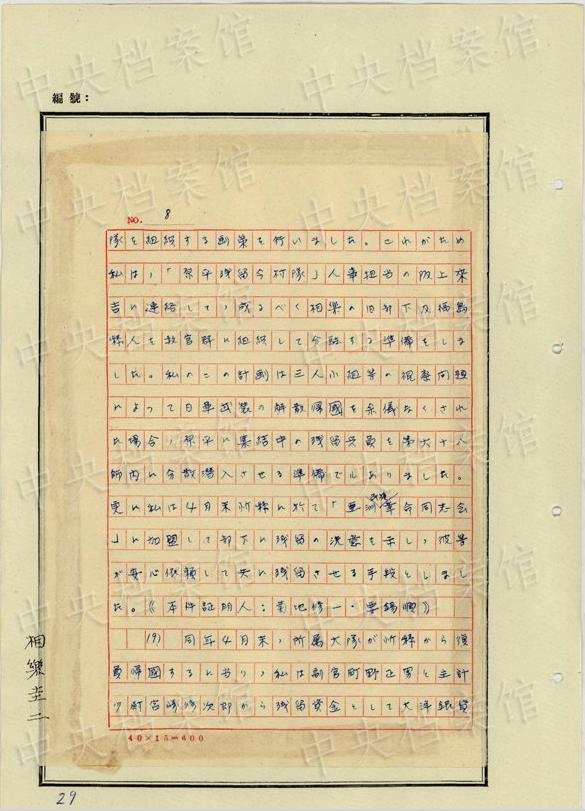 編號：
NO. 8
隊を組織する画策を行いました。これがため
私は，「原平残留今村隊」人事担当の阪上栄
吉に連絡して，成るべく相樂の旧部下及福島
縣人を教官群に組織して合融する準備をしま
した。私のこの計画は三人小組等の視察問題
によって日華武装の解散帰國を余儀なくされ
た場合，原平に集結中の残留兵員を第六十八
師内に分散潜入させる準備でありました。
更に私は4月末忻縣に於て「亜洲民族革命同志会
」に加盟して部下に残留の決意を示し，彼等
が安心依頼して共に残留させる手段としまし
た。《本件証明人：菊地修一・要錫順》
(9) 同年4月末，所属大隊が忻縣から復
員帰國するに当り，私は副官町野正男と主計
少尉宮崎修次郎から残留資金として大洋銀貨
40×15=600
相樂圭二
29
中央档案馆